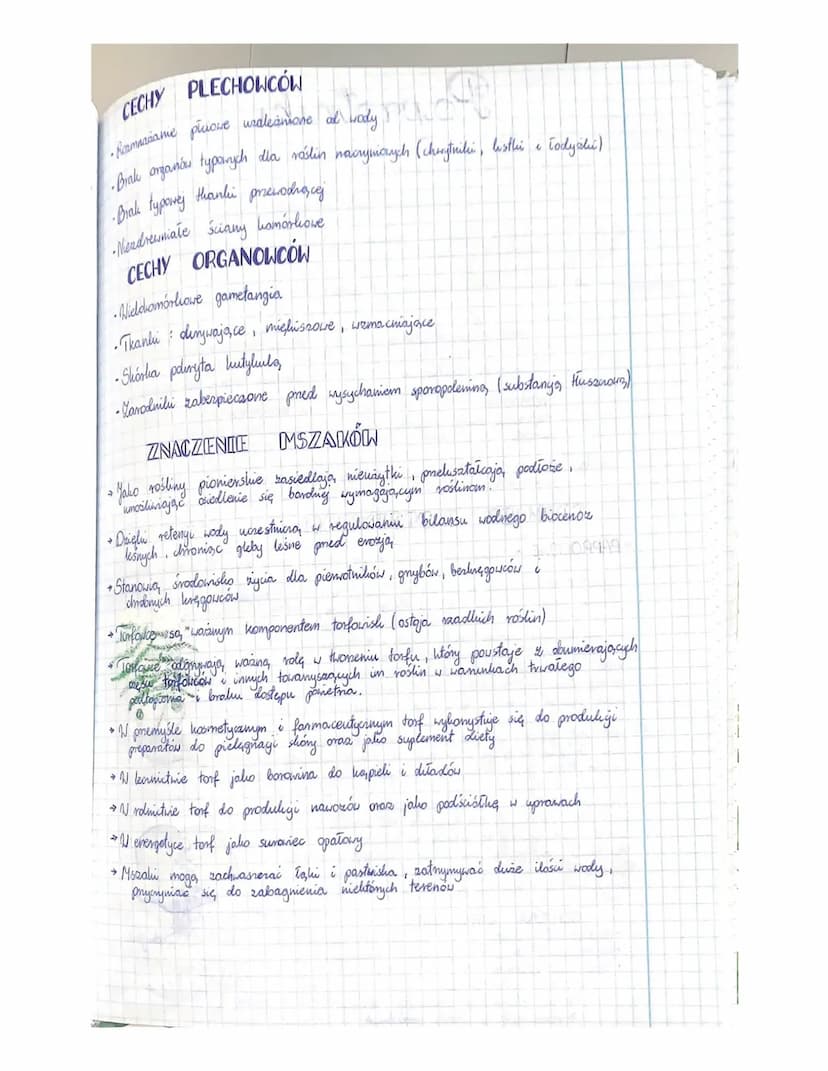 CECHY PLECHOWCÓW
• Rozmnażanie płciowe uzależnione od wody
• Brak organów typowych dla roślin naczyniowych (chwytniki, listki i łodyżki)
• Brak typowej tkanki przewodzącej
• Niezdrewniałe ściany komórkowe
CECHY ORGANOWCÓW
• Wielokomórkowe gametangia
• Tkanki: okrywające, miękiszowe, wzmacniające
• Skórka pokryta kutykulą
• Zarodniki zabezpieczone przed wysychaniem sporopoleniną (substancją tłuszczową)
ZNACZENIE MSZAKÓW
→ Jako rośliny pionierskie zasiedlają nieużytki, przekształcają podłoże,
umożliwiając osiedlenie się bardziej wymagającym roślinom.
→ Dzięki retencji wody uczestniczą w regulowaniu bilansu wodnego biocenoz
leśnych, chroniąc gleby leśne przed erozją
→ Stanowią środowisko życia dla pierwotniaków, grzybów, bezkręgowców i
drobnych kręgowców
→ Torfowce są "ważnym komponentem torfowisk (ostoja rzadkich roślin)
→ Torfowce odgrywają ważną rolę w tworzeniu torfu, który powstaje z obumierających
części torfowców i innych towarzyszących im roślin w warunkach trwałego
podtopienia i braku dostępu powietrza.
→ W przemyśle kosmetycznym i farmaceutycznym torf wykorzystuje się do produkcji
preparatów do pielęgnacji skóry oraz jako suplement diety
→ W lecznictwie torf jako borowina do kąpieli i okładów
→ W rolnictwie torf do produkcji nawozów oraz jako podściółkę w uprawach
→ W energetyce torf jako surowiec opałowy
→ Mszaki mogą zachwaszczać łąki i pastwiska, zatrzymywać duże ilości wody,
przyczyniać się do zabagnienia niektórych terenów